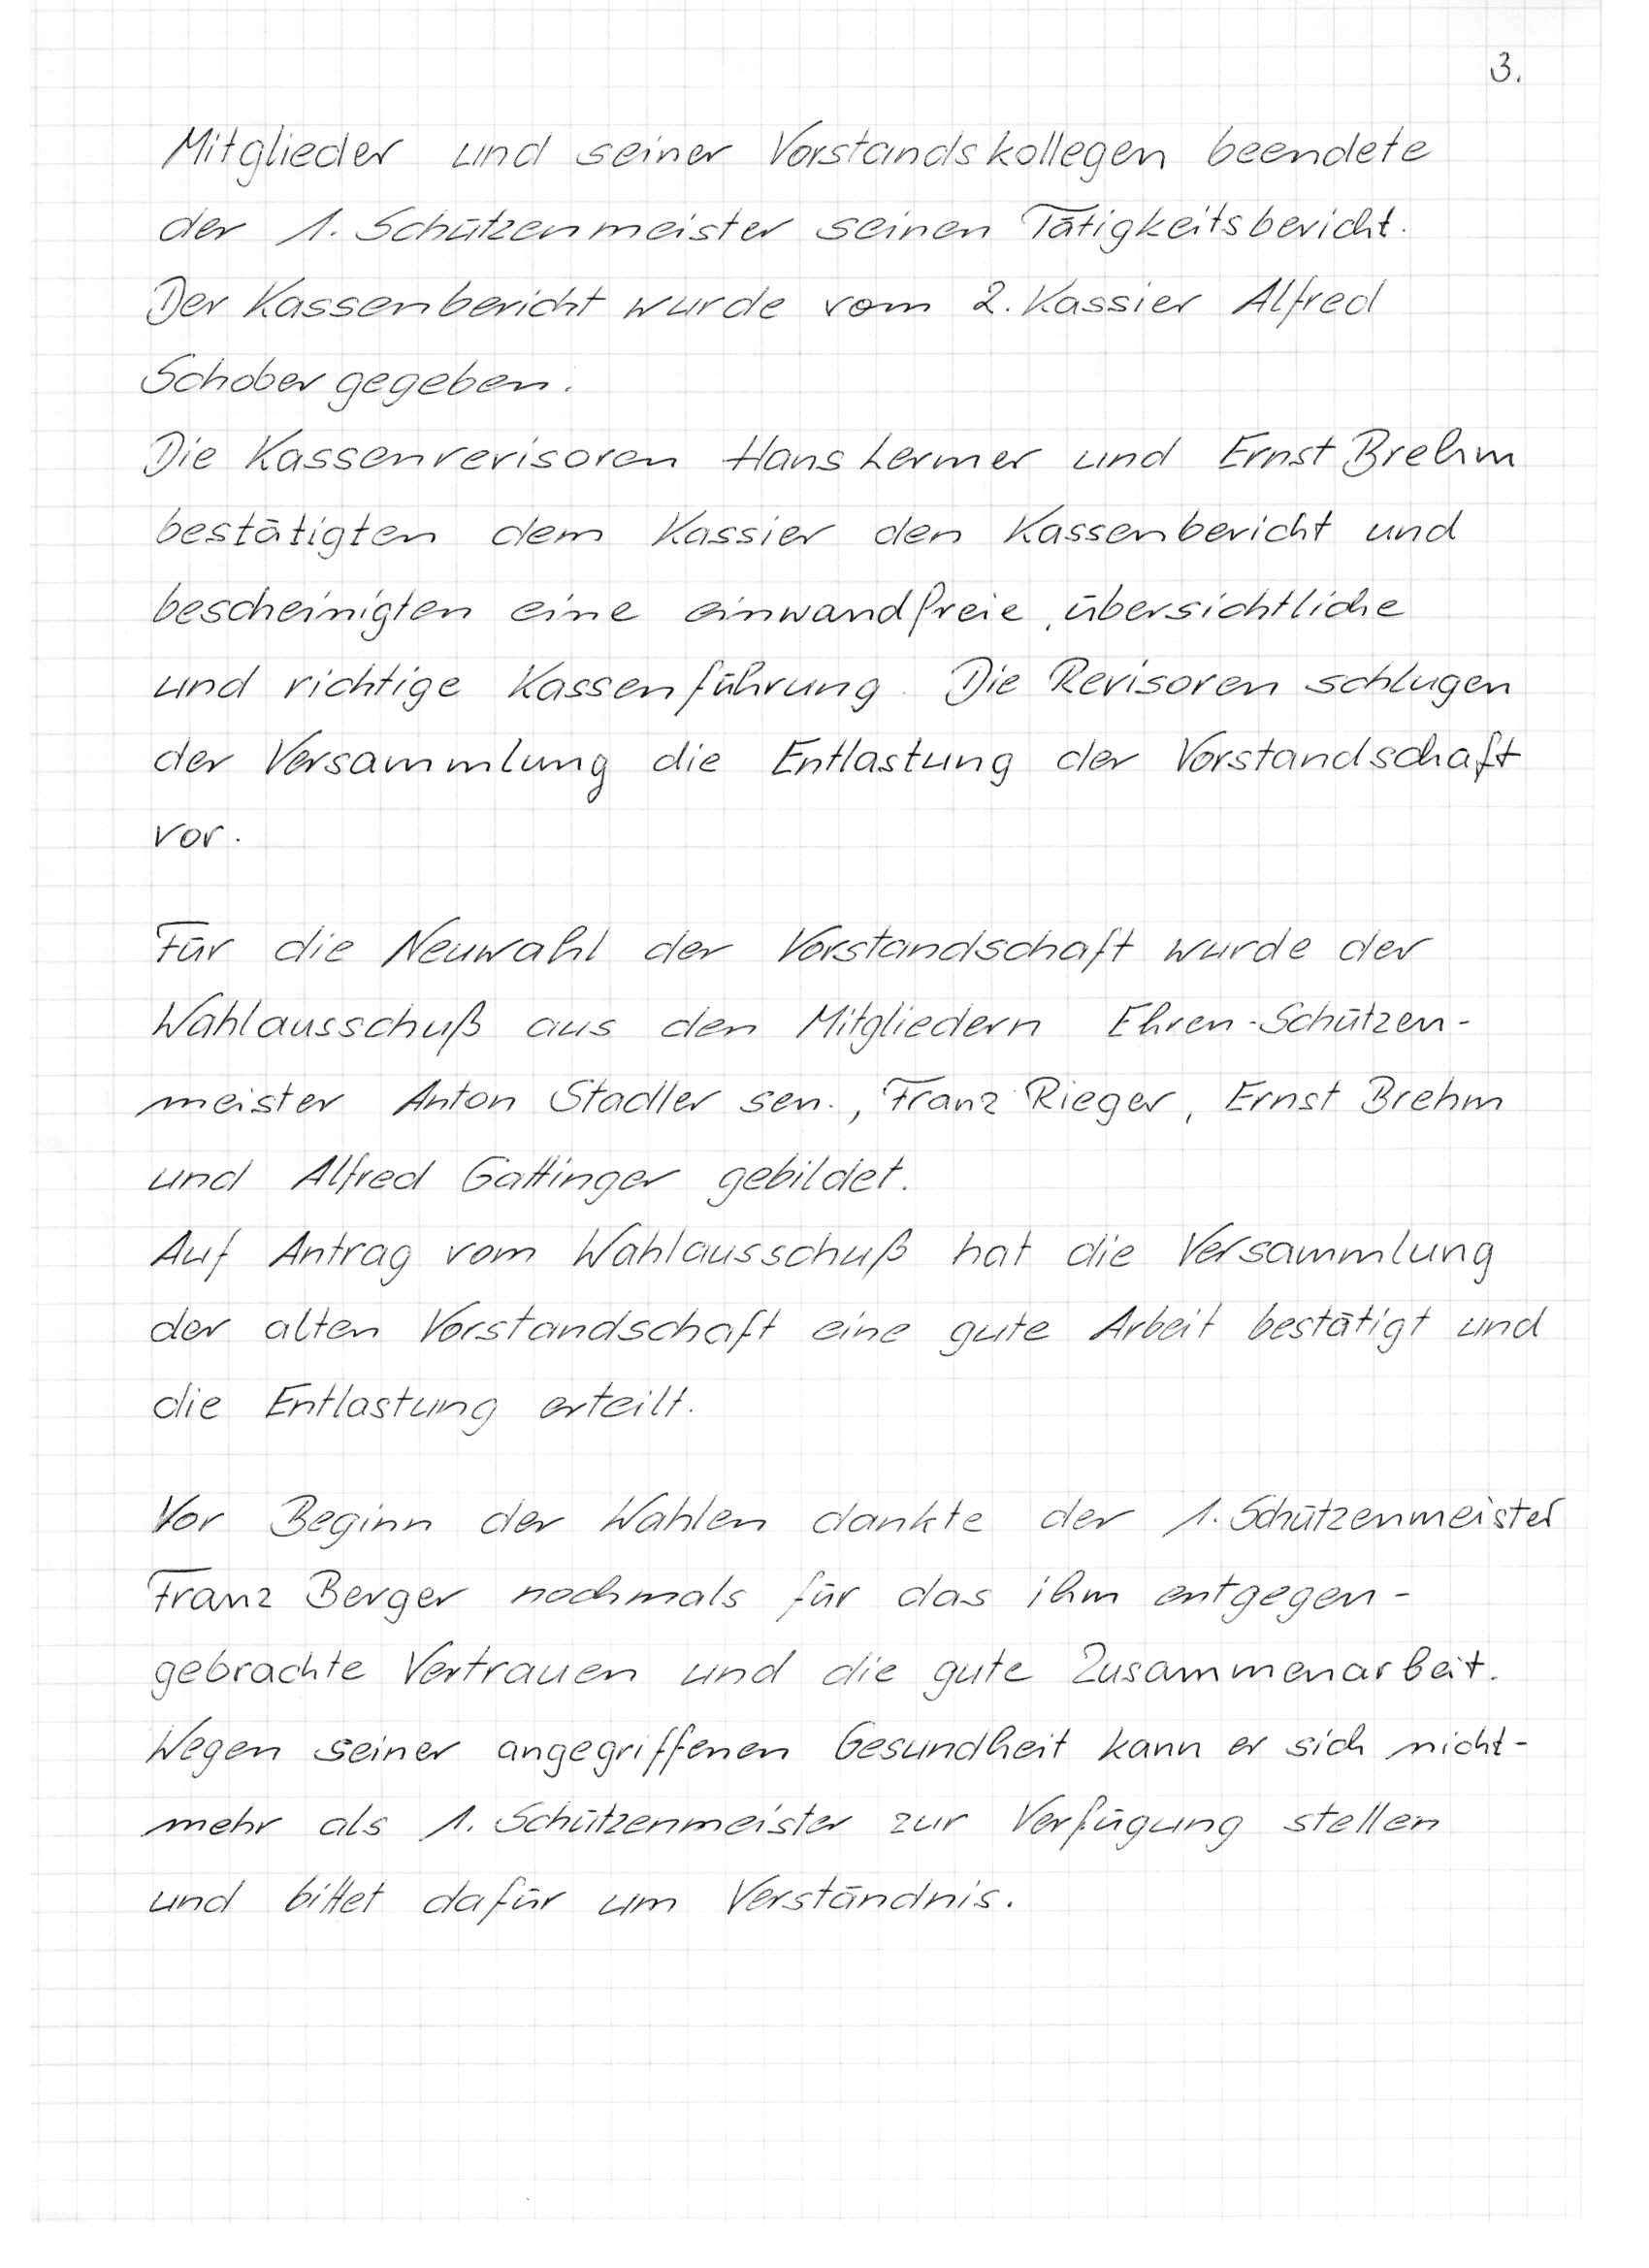 3.
Mitglieder und seiner Vorstandskollegen beendete
der 1. Schützenmeister seinen Tätigkeitsbericht.
Der Kassenbericht wurde vom 2. Kassier Alfred
Schober gegeben.
Die Kassenrevisoren Hans Lermer und Ernst Brehm
bestätigten dem Kassier den Kassenbericht und
bescheinigten eine einwandfreie, übersichtliche
und richtige Kassenführung. Die Revisoren schlugen
der Versammlung die Entlastung der Vorstandschaft
vor.
Für die Neuwahl der Vorstandschaft wurde der
Wahlausschuß aus den Mitgliedern Ehren-Schützen-
meister Anton Stadler sen., Franz Rieger, Ernst Brehm
und Alfred Gattinger gebildet.
Auf Antrag vom Wahlausschuß hat die Versammlung
der alten Vorstandschaft eine gute Arbeit bestätigt und
die Entlastung erteilt.
Vor Beginn der Wahlen dankte der 1. Schützenmeister
Franz Berger nochmals für das ihm entgegen-
gebrachte Vertrauen und die gute Zusammenarbeit.
Wegen seiner angegriffenen Gesundheit kann er sich nicht-
mehr als 1. Schützenmeister zur Verfügung stellen
und bittet dafür um Verständnis.